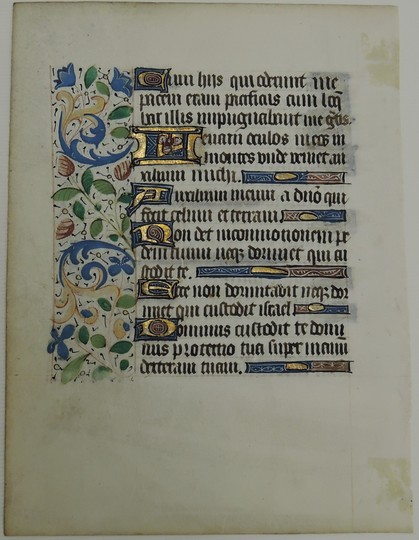 Cum hijs qui oderunt me
pacem eram pacificus cum loq̄
bar illis impugnabant me g̃tis.
Levavi oculos meos in
montes unde veniet au
xilium michi.
Auxilium meum a dño qui
fecit celum et terram
Non det in commotionem pe
dem tuum neq̄ dormiet qui cu
stodit te.
Ecce non dormitabit neq̄ dor
miet qui custodit israel
Dominus custodit te domi
nus protectio tua super manum
dexteram tuam.